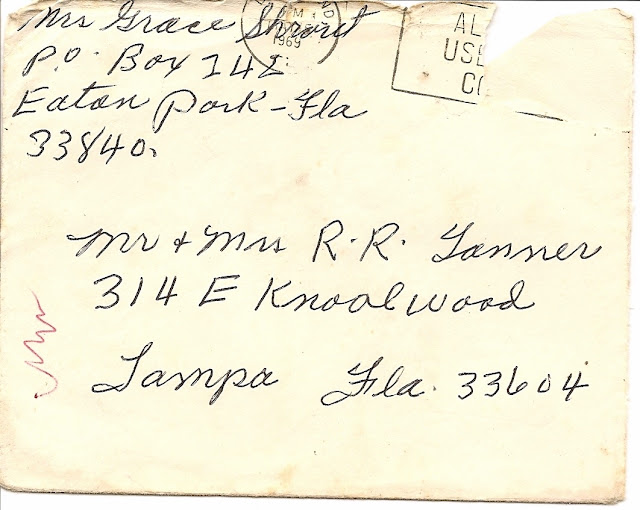 Mrs Grace Shrout
P.O. Box 142
Eaton Park-Fla
33840.
PM
1969
AL
USE
Mr & Mrs R.R. Tanner
314 E Knoolwood
Tampa Fla. 33604